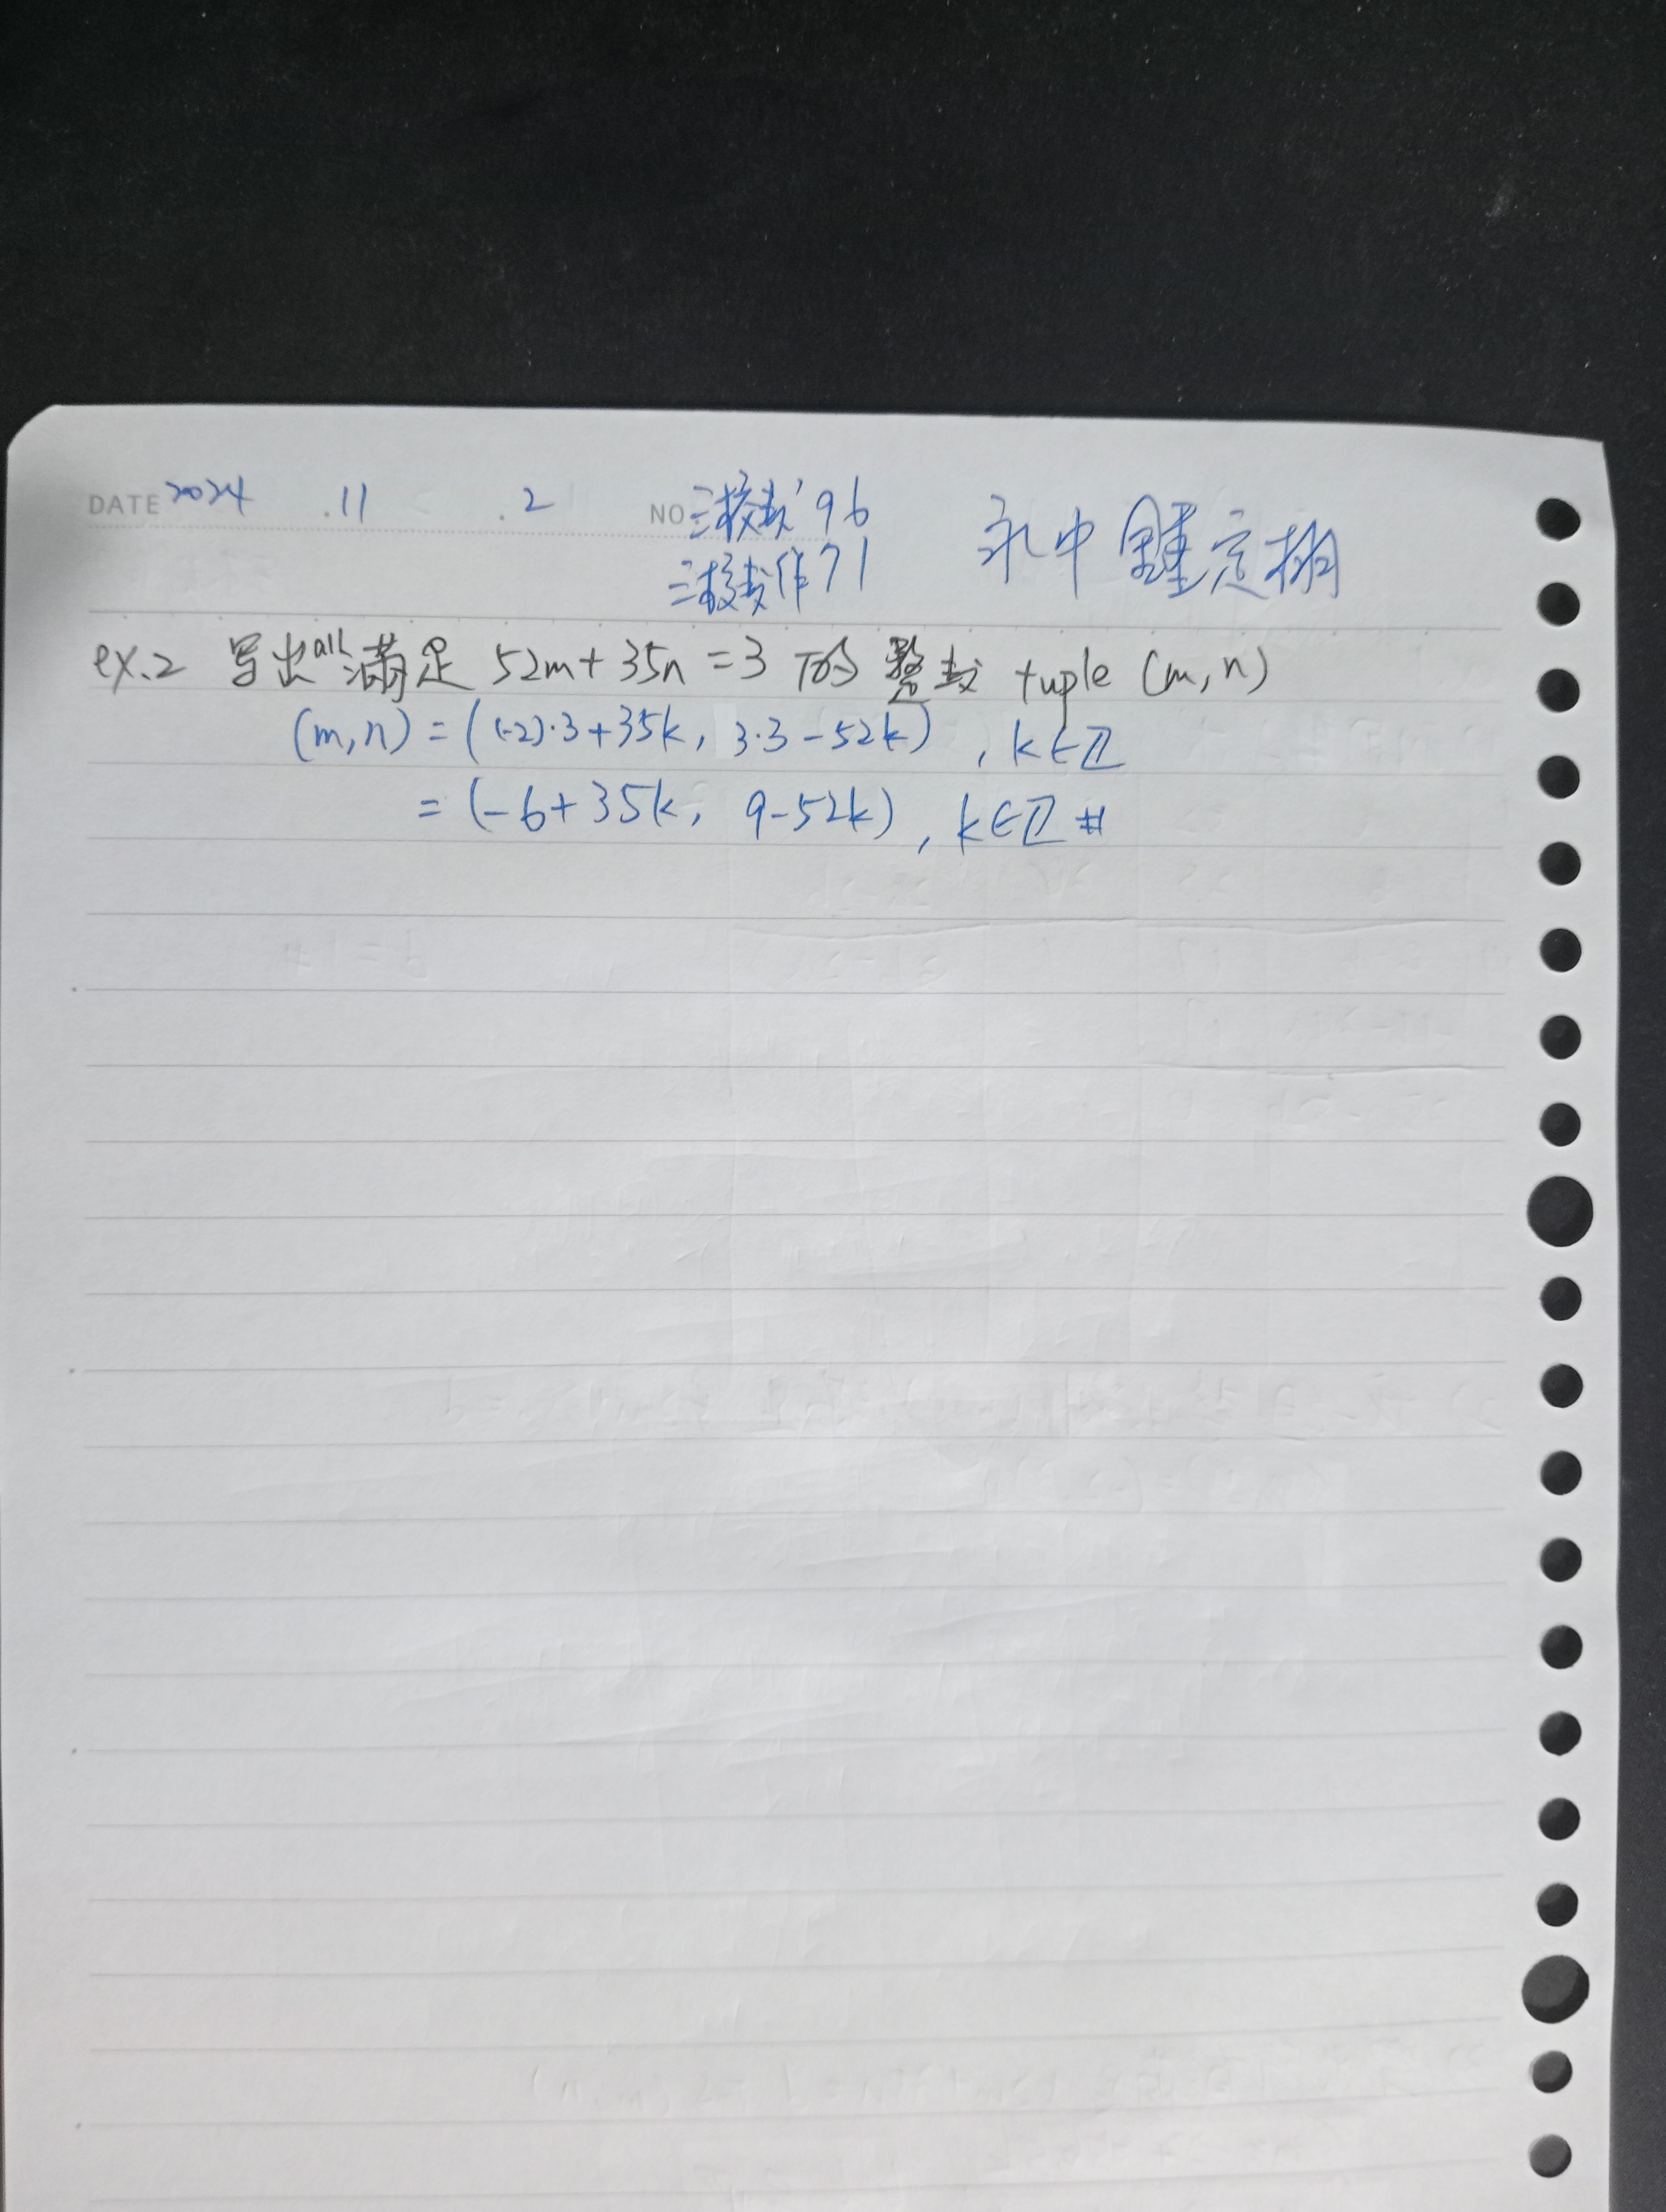 DATE 2024 .11 .2 NO.三校数'96
三校数作71
永中 鍾定栩
ex.2 写出all满足 52m+35n=3 的整数 tuple (m,n)
(m,n) = ((-2)·3+35k, 3·3-52k), k∈ℤ
= (-6+35k, 9-52k), k∈ℤ #